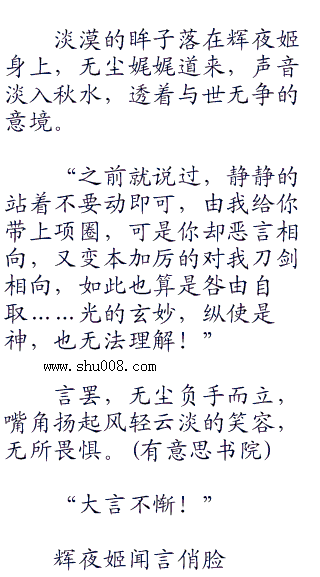 淡漠的眸子落在辉夜姬
身上，无尘娓娓道来，声音
淡入秋水，透着与世无争的
意境。
“之前就说过，静静的
站着不要动即可，由我给你
带上项圈，可是你却恶言相
向，又变本加厉的对我刀剑
相向，如此也算是咎由自
取……光的玄妙，纵使是
神，也无法理解！”
www.shu008.com
言罢，无尘负手而立，
嘴角扬起风轻云淡的笑容，
无所畏惧。(有意思书院)
“大言不惭！”
辉夜姬闻言俏脸